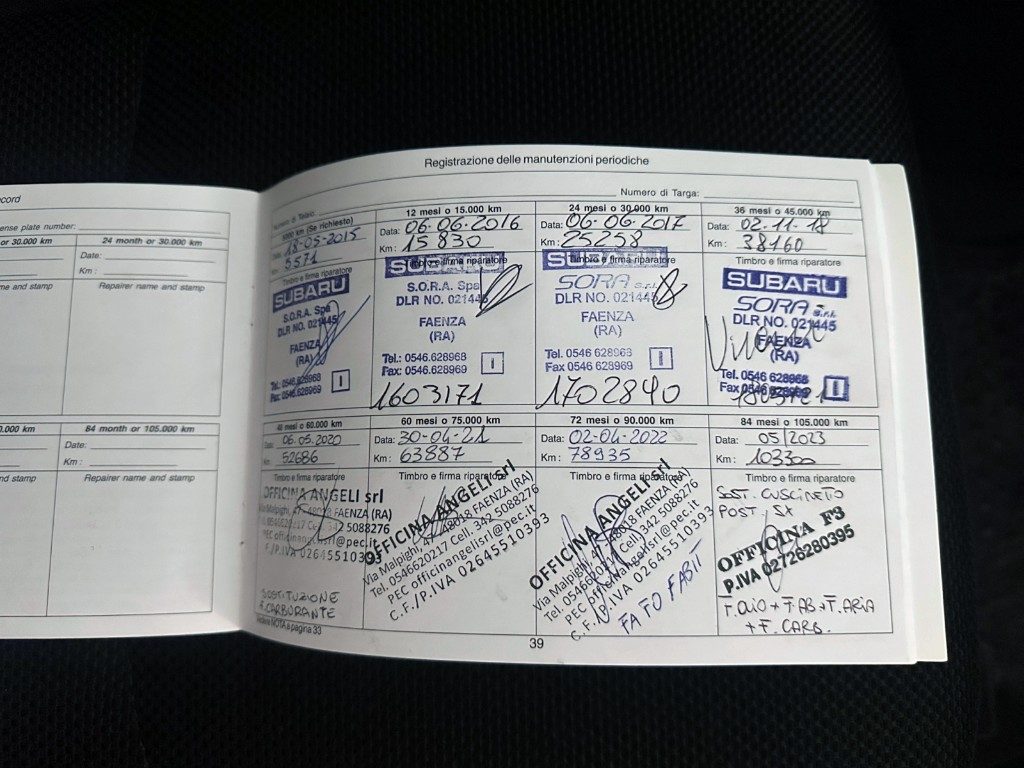 ecord
ense plate number:
or 30.000 km
24 month or 30.000 km
Date:
Km :
and stamp
Repairer name and stamp
0.000 km
84 month or 105.000 km
Date:
Km :
nd stamp
Repairer name and stamp
Registrazione delle manutenzioni periodiche
Numero di Telaio:
Numero di Targa:
5000 km (Se richiesto)
18-05-2015
5571
Timbro e firma riparatore
SUBARU
S.O.R.A. Spa
DLR NO. 021445
FAENZA
(RA)
Tel.: 0546.628968
Fax: 0546.628969
12 mesi o 15.000 km
Data: 06-06-2016
Km: 15830
Timbro e firma riparatore
SUBARU
S.O.R.A. Spa
DLR NO. 021445
FAENZA
(RA)
Tel.: 0546.628968
Fax: 0546.628969
1603171
24 mesi o 30.000 km
Data: 06-06-2017
Km: 25258
Timbro e firma riparatore
SUBARU
SORA s.r.l.
DLR NO. 021445
FAENZA
(RA)
Tel. 0546 628968
Fax 0546 628969
1702840
36 mesi o 45.000 km
Data: 02-11-18
Km: 38160
Timbro e firma riparatore
SUBARU
SORA s.r.l.
DLR NO. 021445
FAENZA
(RA)
Tel. 0546 628968
Fax 0546 628969
48 mesi o 60.000 km
06.05.2020
52686
Timbro e firma riparatore
OFFICINA ANGELI srl
Via Malpighi, 47 48018 FAENZA (RA)
Tel. 0546620217 Cell. 342 5088276
PEC officinangelisrl@pec.it
C.F./P.IVA 02645510393
SOSTITUZIONE
F. CARBURANTE
Vedere NOTA a pagina 33
60 mesi o 75.000 km
Data: 30-04-21
Km: 63887
Timbro e firma riparatore
OFFICINA ANGELI srl
Via Malpighi, 47 48018 FAENZA (RA)
Tel. 0546620217 Cell. 342 5088276
PEC officinangelisrl@pec.it
C.F./P.IVA 02645510393
72 mesi o 90.000 km
Data: 02-04-2022
Km: 78935
Timbro e firma riparatore
OFFICINA ANGELI srl
Via Malpighi, 47 48018 FAENZA (RA)
Tel. 0546620217 Cell. 342 5088276
PEC officinangelisrl@pec.it
C.F./P.IVA 02645510393
FA FO FABIT
84 mesi o 105.000 km
Data: 05/2023
Km: 103300
Timbro e firma riparatore
SOST. CUSCINETO
POST. SX
OFFICINA F3
P.IVA 02726280395
F. OLIO + F. AB + F. ARIA
+ F. CARB.
39